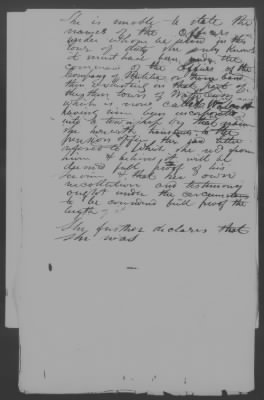 She is unable to state the
names of the officers
under whom he served in this
tour of duty she only knows
it must have been under the
command of the officers of the
Company of Militia or them
then existing in that part of
which is now called
having been incorporated
into a township by that name
She herewith transmits to the
pension office the letter
referred to which she recd from
him & believes it will be
deemed full proof of his
service & that her own
recollection and testimony
ought under the circumstances
to be considered full proof the
length of
She further declares that
she was